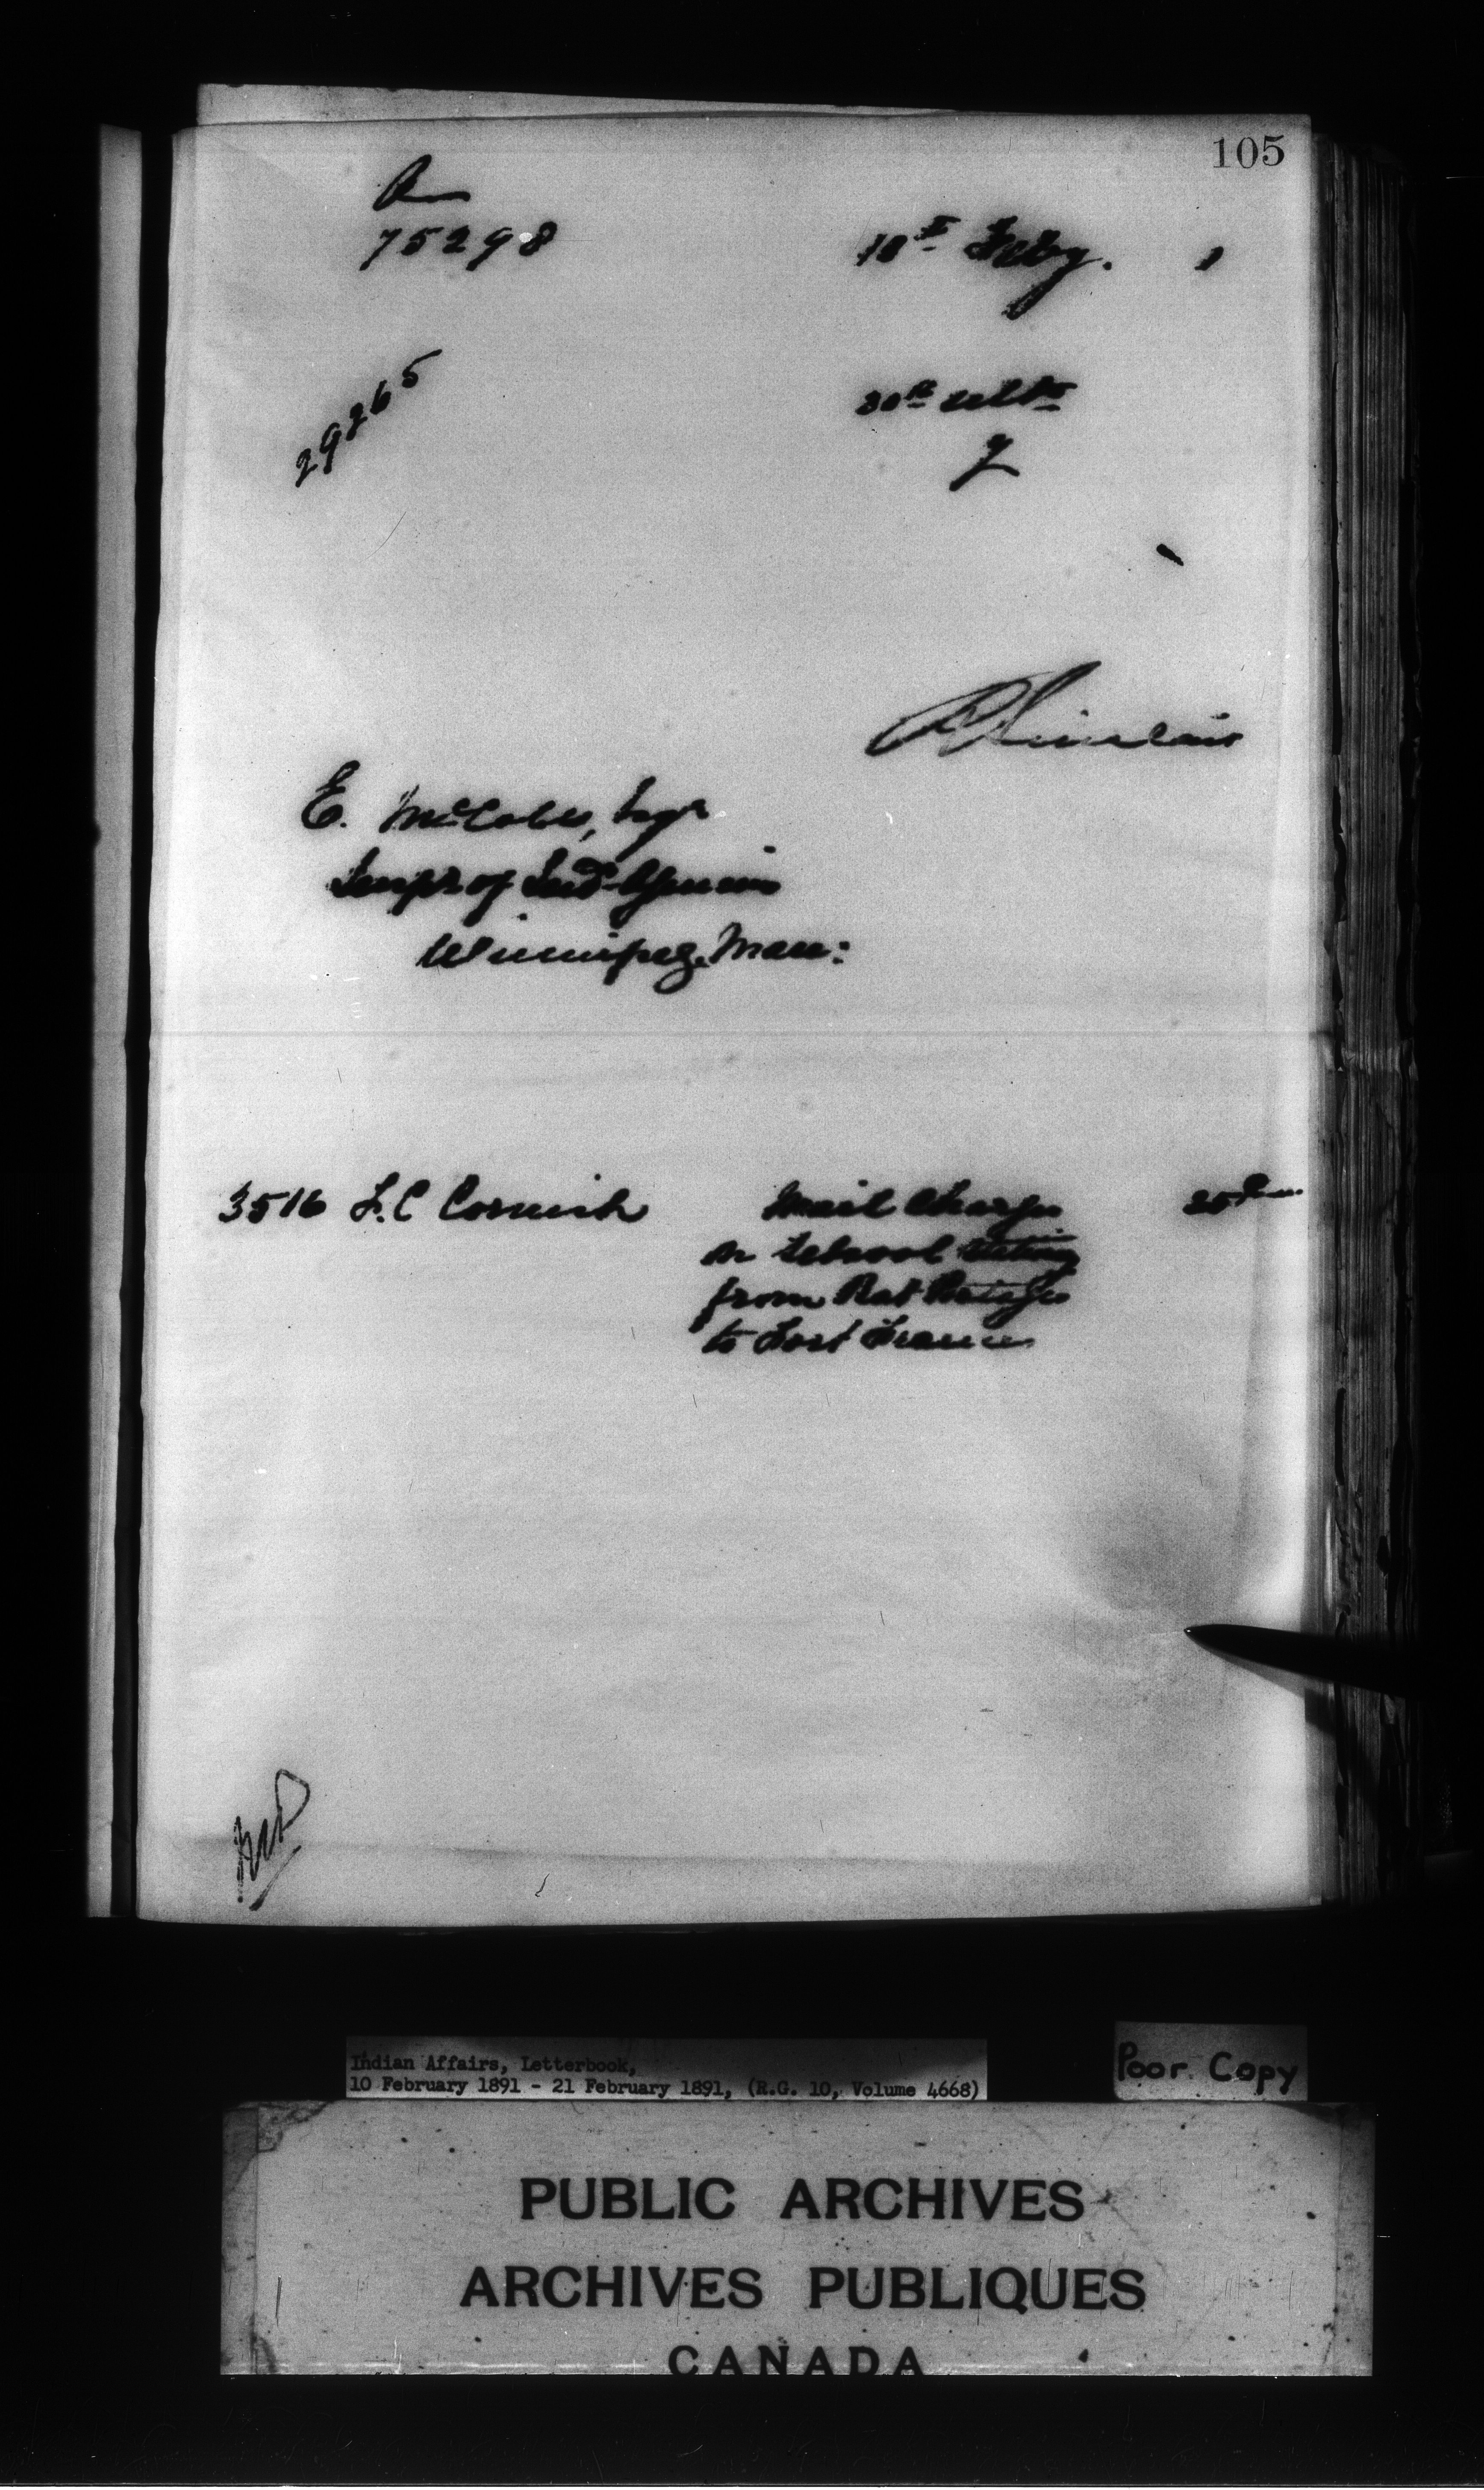 105
75298
18th Feby. 1
29265
30th ulto
R Sinclair
E. McColl, Esqr
Inspr of Ind. Agencies
Winnipeg. Man:
3516 F.C Cornish Mail Charges
on School
from Rat Portage
to Fort Frances
Indian Affairs, Letterbook,
10 February 1891 - 21 February 1891, (R.G. 10, Volume 4668)
Poor Copy
PUBLIC ARCHIVES
ARCHIVES PUBLIQUES
CANADA